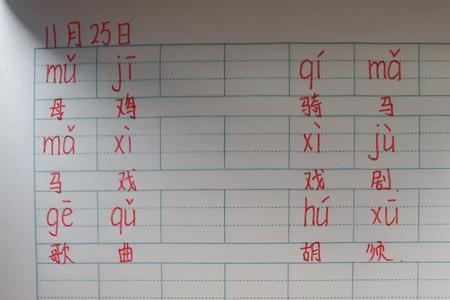 11月25日
mǔ jī qí mǎ
母 鸡 骑 马
mǎ xì xì jù
马 戏 戏 剧
gē qǔ hú xū
歌 曲 胡 须